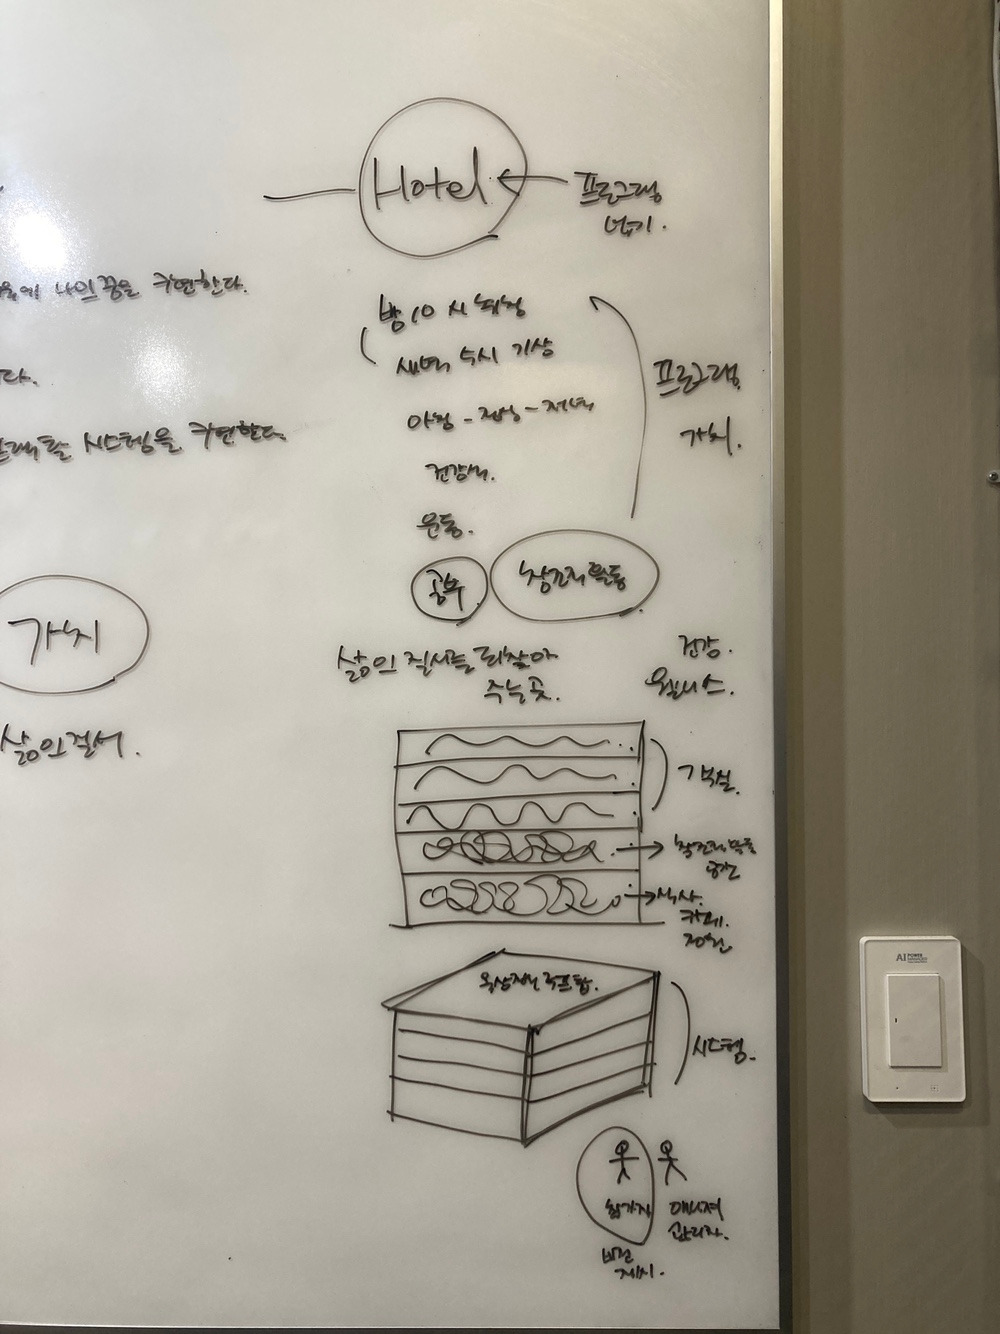 Hotel
프로그램
넣기.
나의 꿈을 구현한다.
밤 10시 취침
새벽 수시 기상
다.
시스템을 구현한다
아침 - 점심 - 저녁
프로그램
가치.
건강식.
운동.
공부
창조적 활동
가치
삶의 질서를 되찾아
주는 곳.
건강.
웰니스.
삶의 질서.
창조적 활동
공간
식사.
카페.
정원
옥상정원 루프탑.
시스템.
참가자
매니저
관리자.
비전
제시.
AI POWER